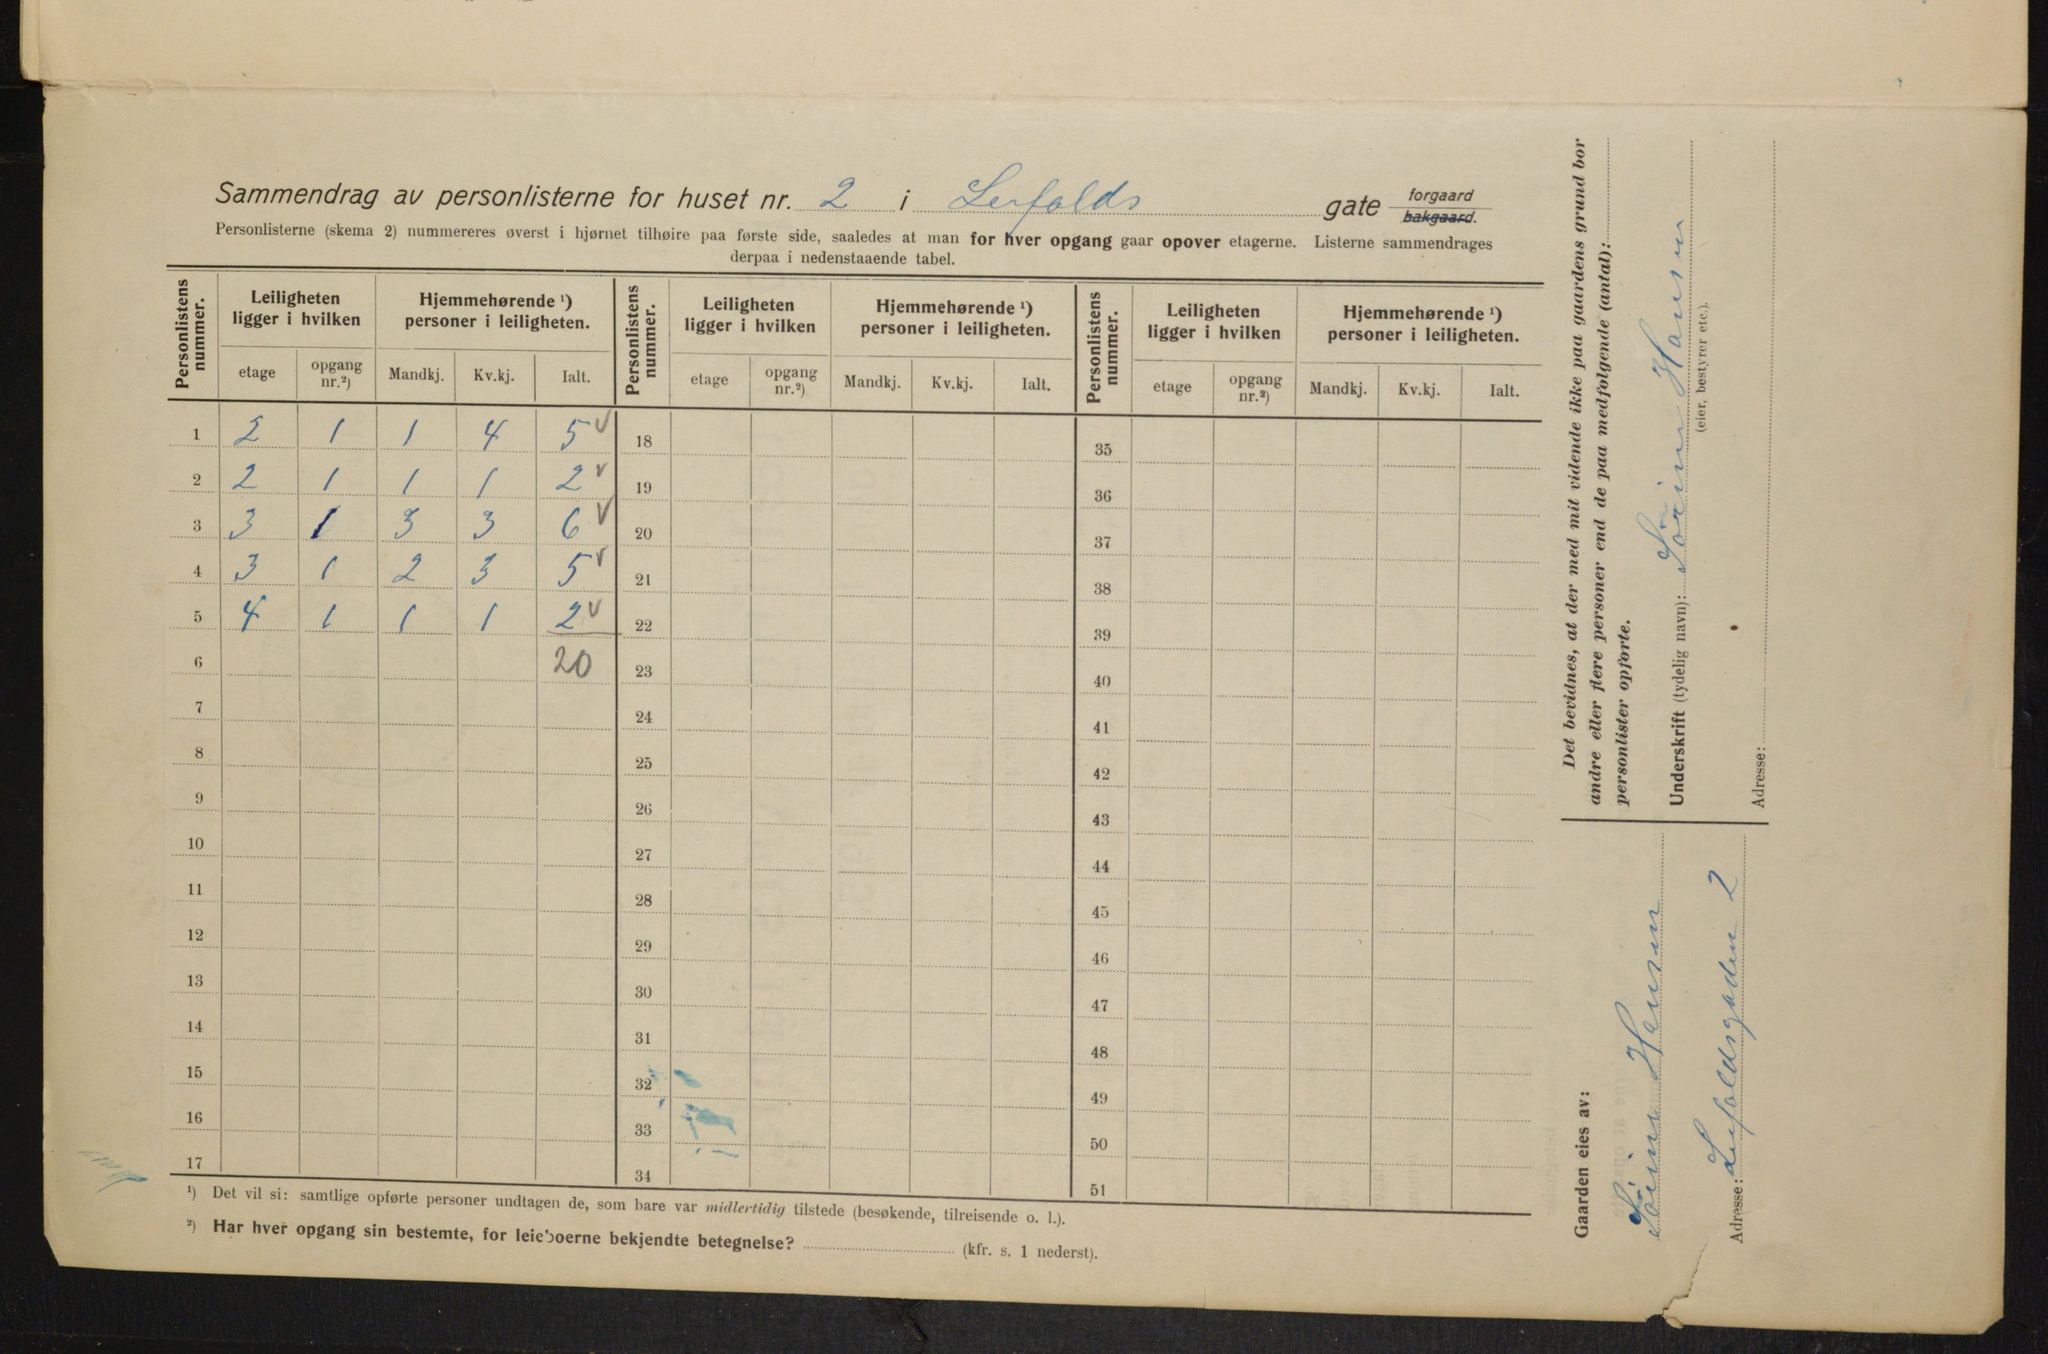 Sammendrag av personlisterne for huset nr. 2 i Lerfalds gate forgaard bakgaard.
Personlisterne (skema 2) nummereres øverst i hjørnet tilhøire paa første side, saaledes at man for hver opgang gaar opover etagerne. Listerne sammendrages
derpaa i nedenstaaende tabel.
Personlistens nummer. Leiligheten ligger i hvilken Hjemmehørende ¹) personer i leiligheten. Personlistens nummer. Leiligheten ligger i hvilken Hjemmehørende ¹) personer i leiligheten. Personlistens nummer. Leiligheten ligger i hvilken Hjemmehørende ¹) personer i leiligheten.
etage opgang nr.²) Mandkj. Kv.kj. Ialt. etage opgang nr.²) Mandkj. Kv.kj. Ialt. etage opgang nr.²) Mandkj. Kv.kj. Ialt.
1 2 1 1 4 5 v 18 35
2 2 1 1 1 2 v 19 36
3 3 1 3 3 6 v 20 37
4 3 1 2 3 5 v 21 38
5 4 1 1 1 2 v 22 39
6 20 23 40
7 24 41
8 25 42
9 26 43
10 27 44
11 28 45
12 29 46
13 30 47
14 31 48
15 32 49
16 33 50
17 34 51
¹) Det vil si: samtlige opførte personer undtagen de, som bare var midlertidig tilstede (besøkende, tilreisende o. l.).
²) Har hver opgang sin bestemte, for leieboerne bekjendte betegnelse? (kfr. s. 1 nederst).
Det bevidnes, at der med mit vidende ikke paa gaardens grund bor
andre eller flere personer end de paa medfølgende (antal):
personlister opførte.
Underskrift (tydelig navn): Hansen
(eier, bestyrer etc.).
Adresse:
Gaarden eies av:
Hansen
Adresse: Lerfaldsgaden 2